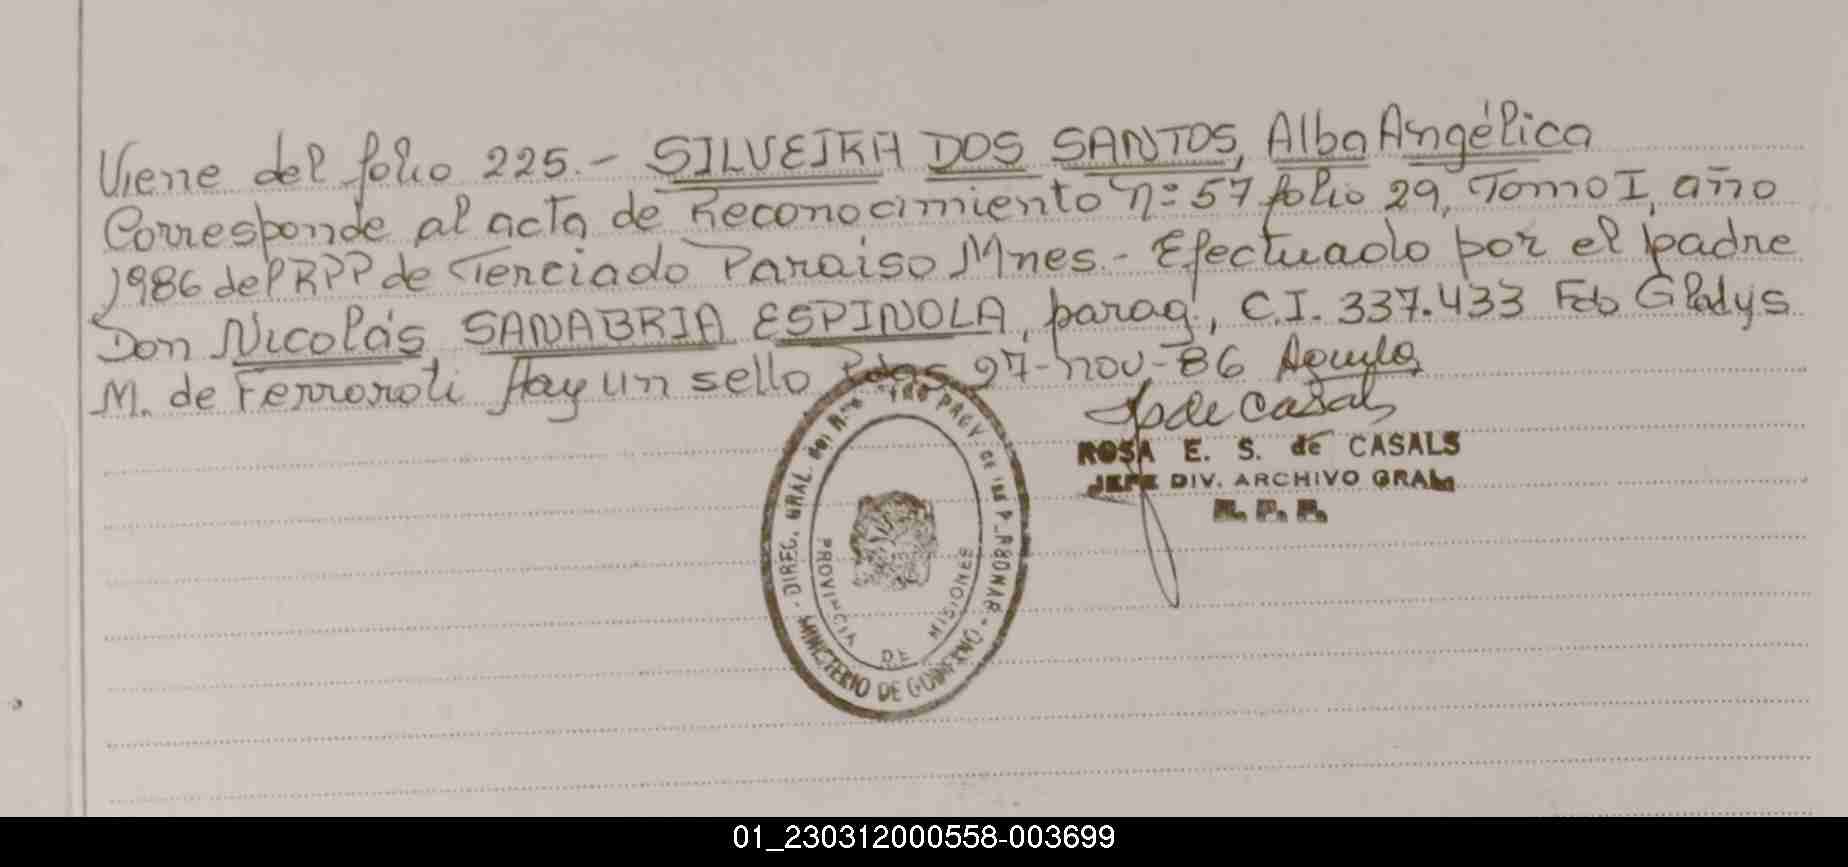 Viene del folio 225.- SILVEIRA DOS SANTOS, Alba Angélica
Corresponde al acta de Reconocimiento nº 57 folio 29, Tomo I, año
1986 del RPP de Terciado Paraiso Mnes.- Efectuado por el padre
Don Nicolás SANABRIA ESPINOLA, parag, C.I. 337.433 Fdo Gladys
M. de Ferroroti Hay un sello Pdas 27-nov-86
de Casals
ROSA E. S. de CASALS
JEFE DIV. ARCHIVO GRAL
R. P. P.
DIREC. GRAL. DEL
MINISTERIO DE GOBIERNO
PROVINCIA DE MISIONES
01_230312000558-003699